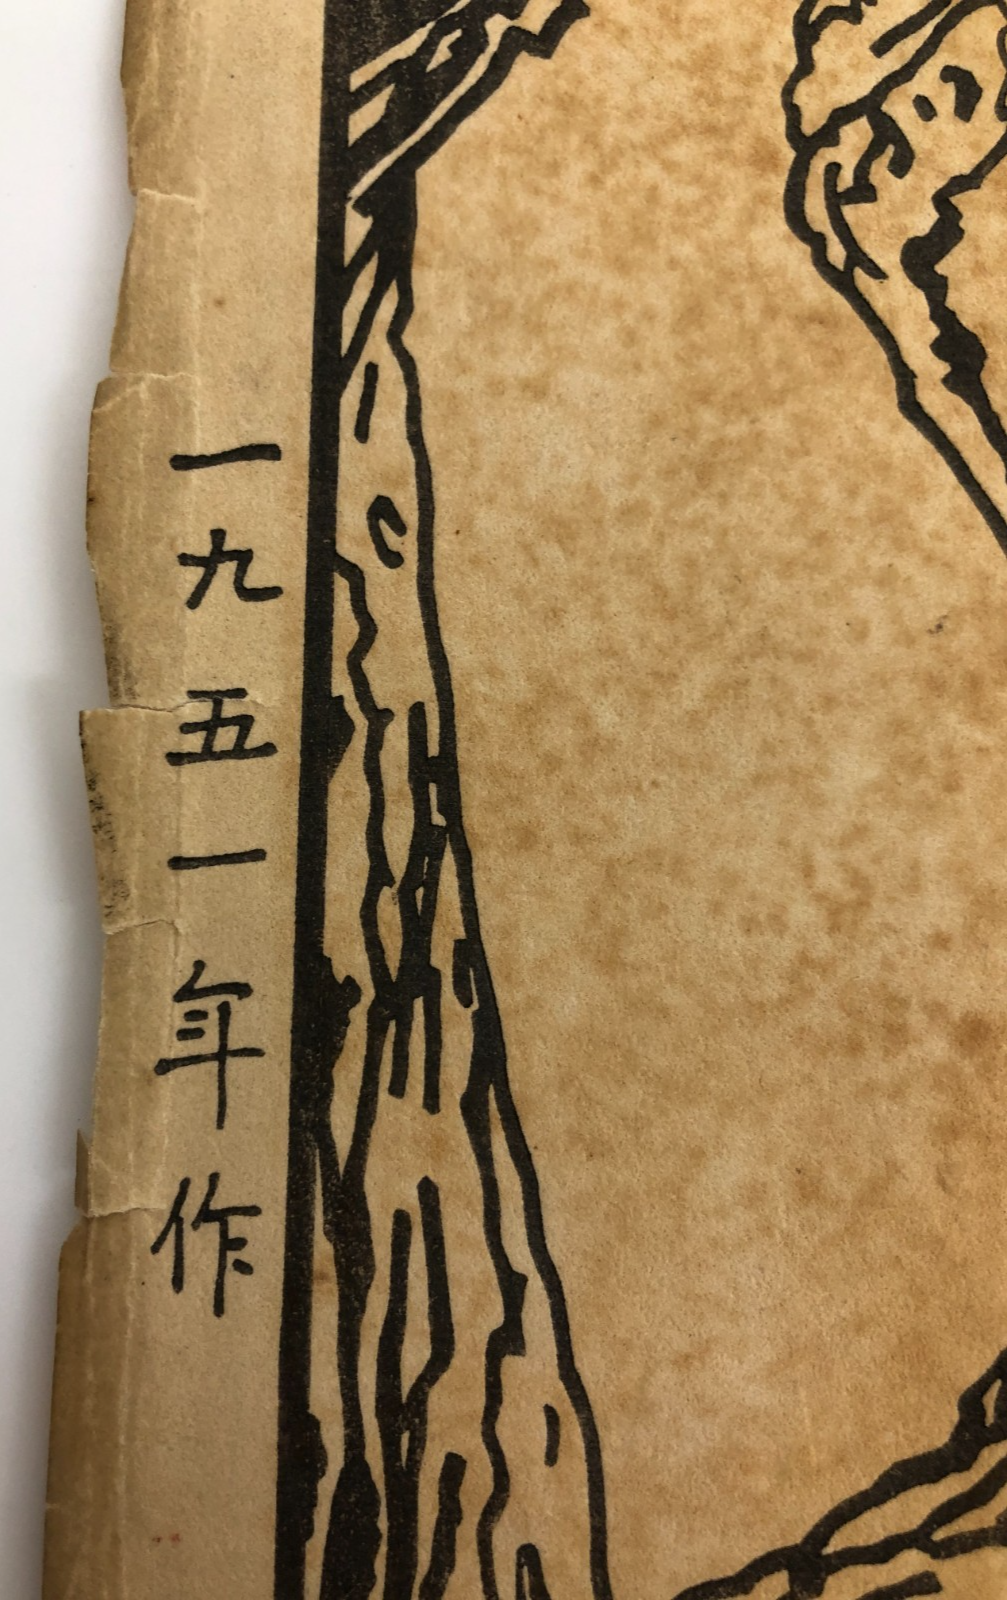 一九五一年作